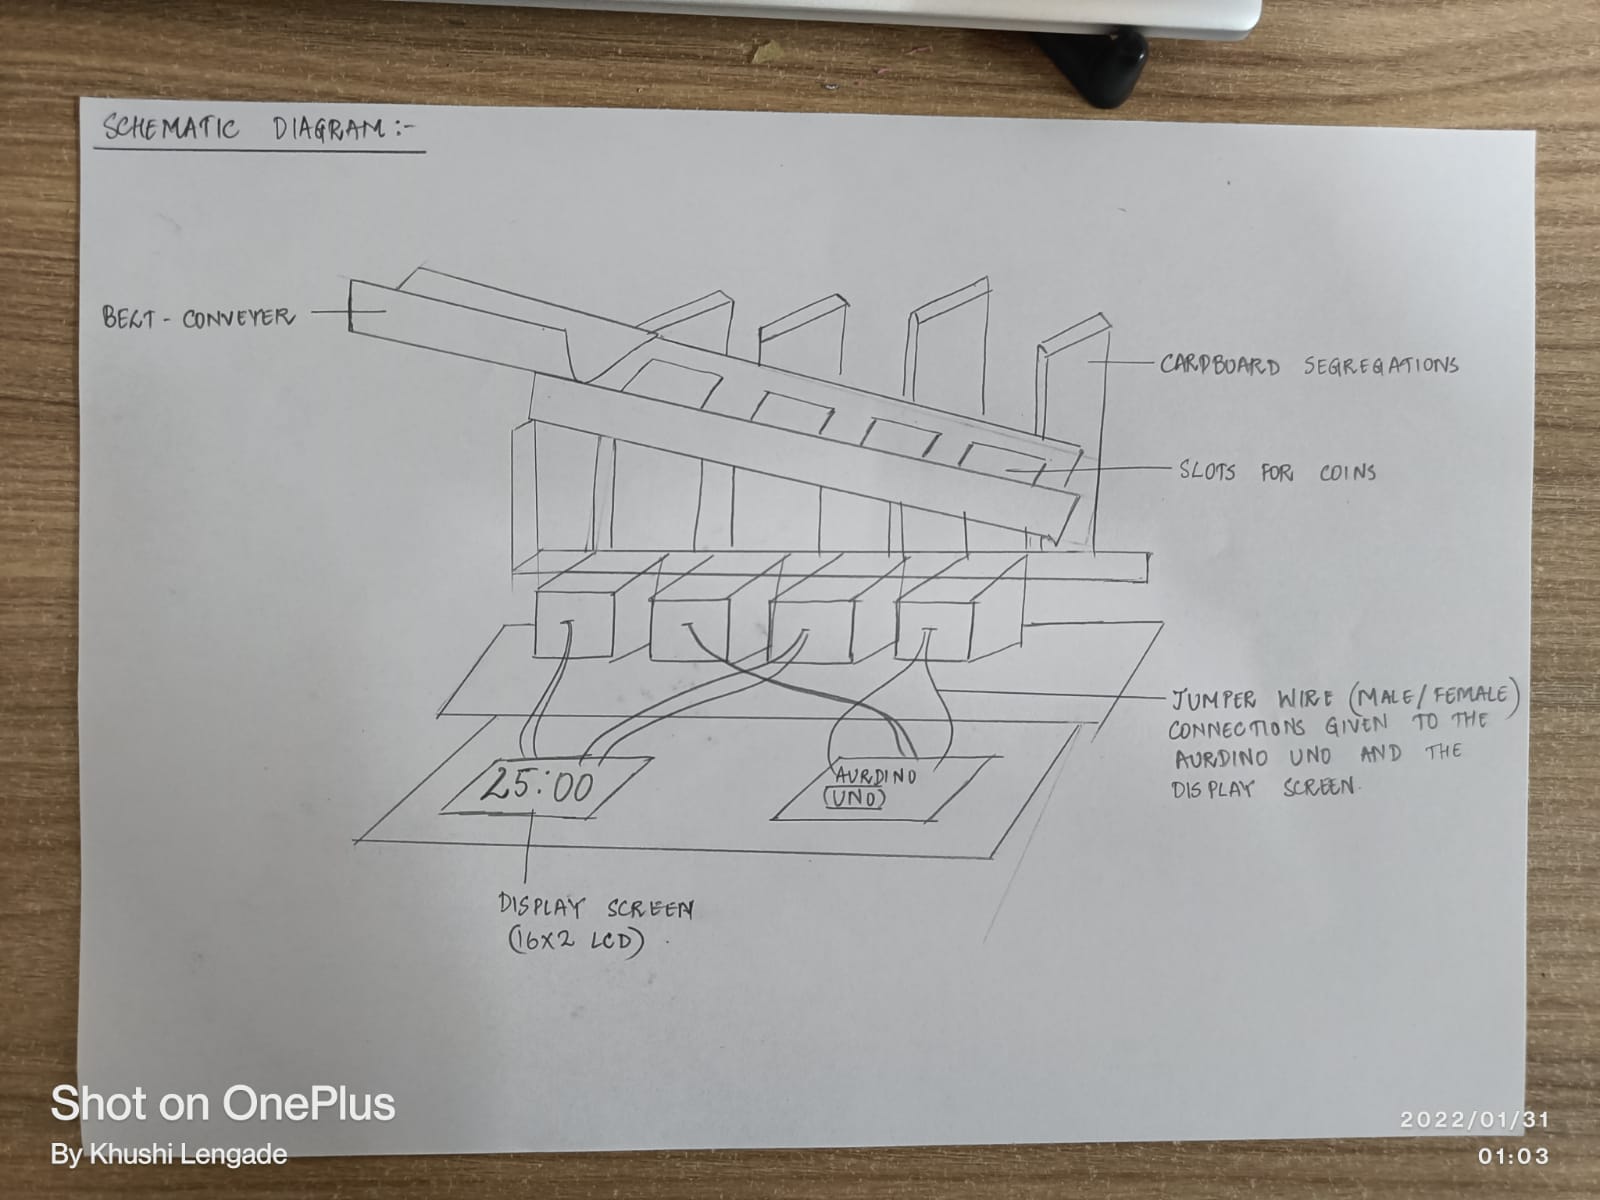 SCHEMATIC DIAGRAM:-
BELT - CONVEYER
CARDBOARD SEGREGATIONS
SLOTS FOR COINS
JUMPER WIRE (MALE/FEMALE)
CONNECTIONS GIVEN TO THE
AURDINO UNO AND THE
DISPLAY SCREEN.
25:00
AURDINO
(UNO)
DISPLAY SCREEN
(16X2 LCD).
Shot on OnePlus
By Khushi Lengade
2022/01/31
01:03